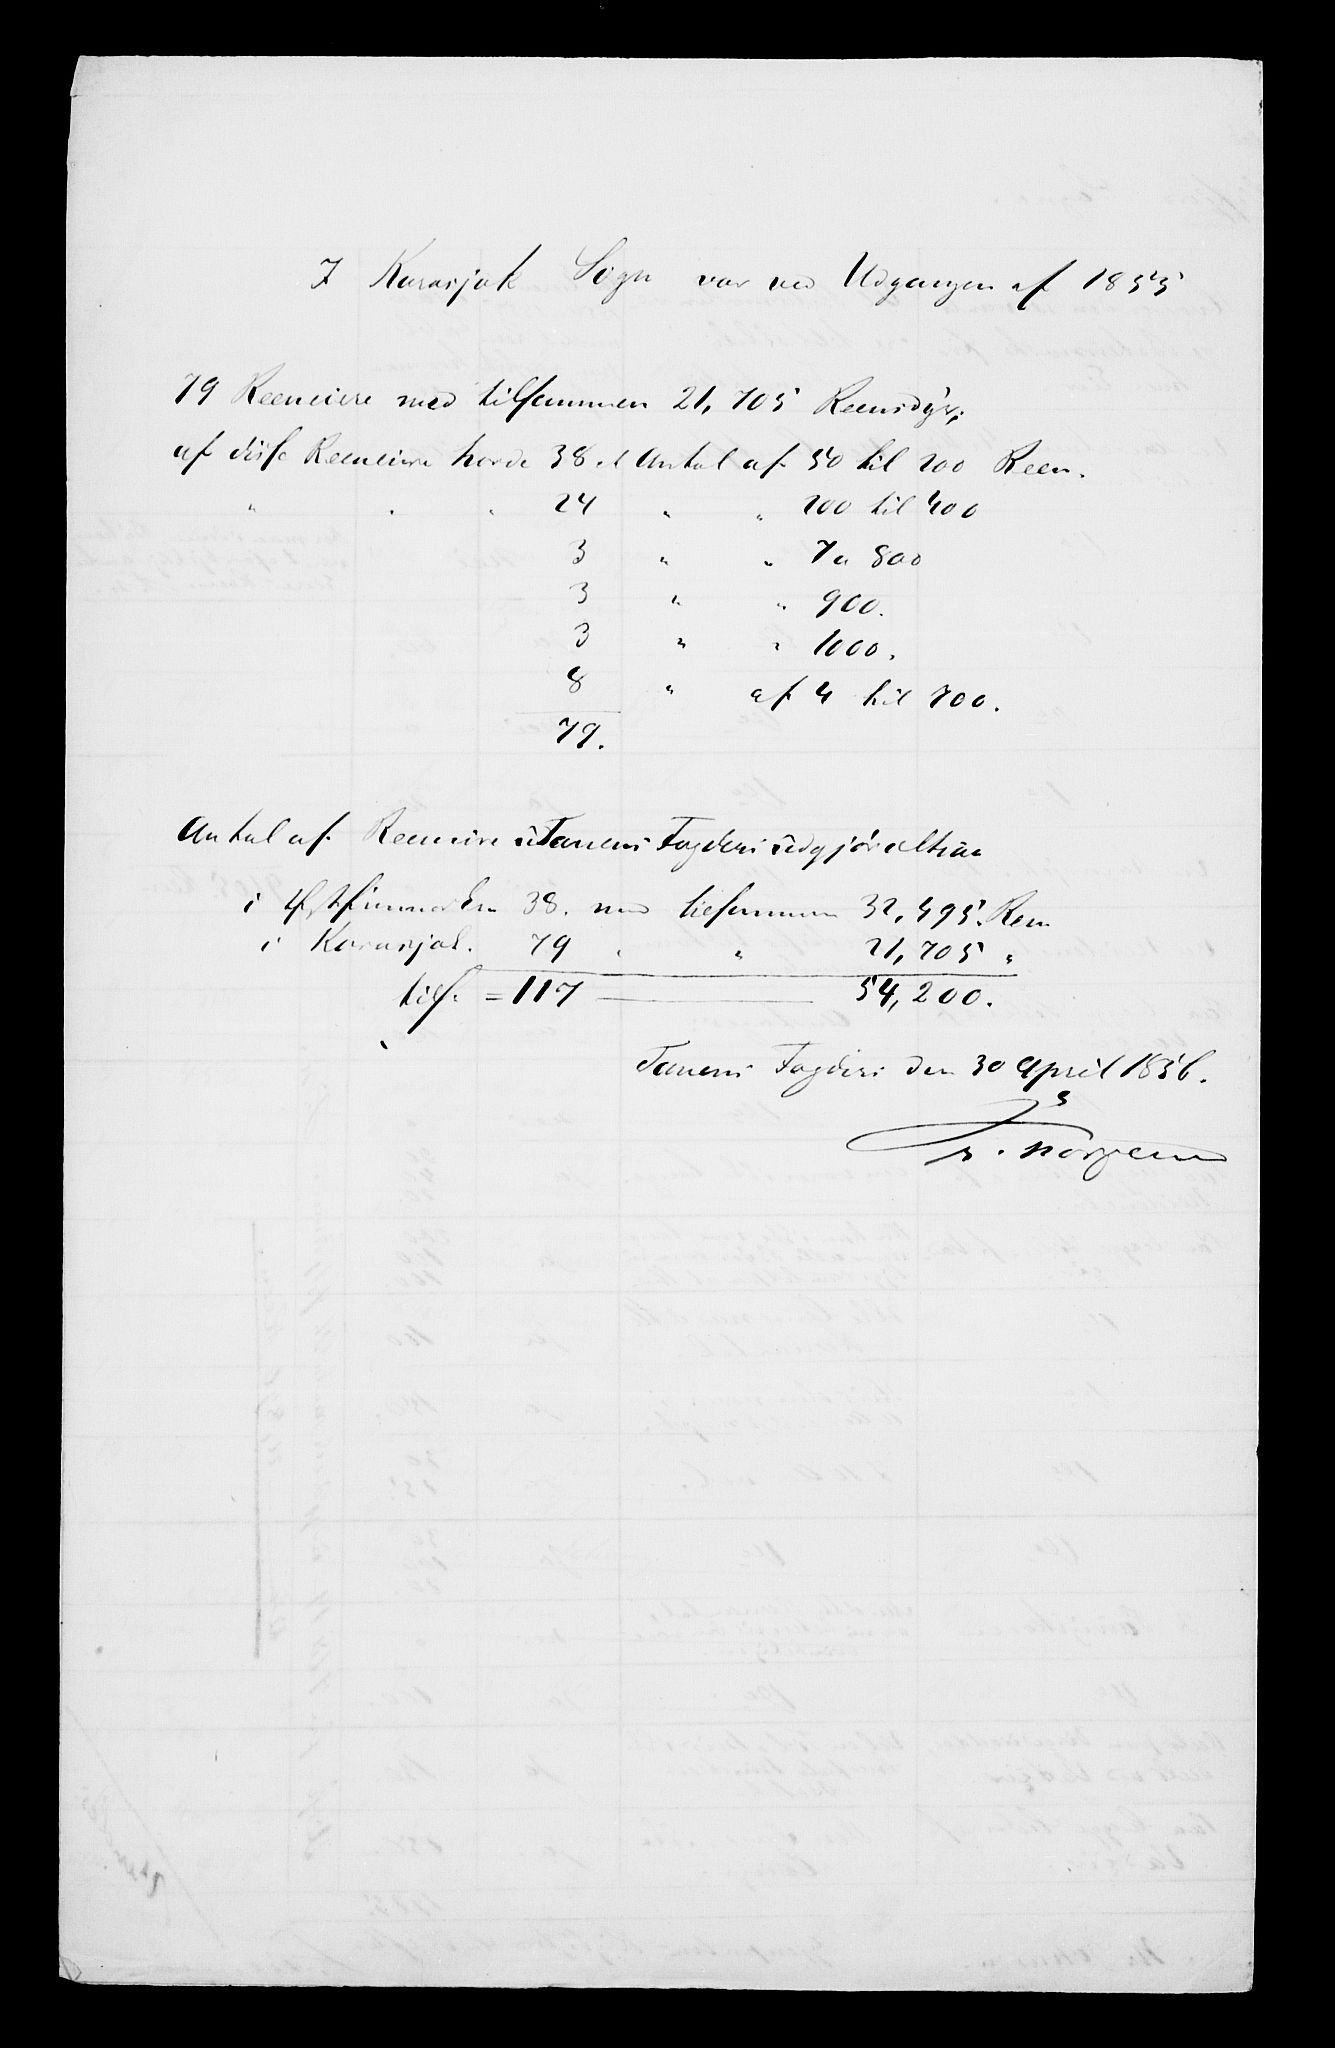 I Karasjok Sogn var ved Udgangen af 1855
79 Reeneiere med tilsammen 21,705 Reensdyr;
af disse Reeneiere havde 38 et Antal af 50 til 200 Reen.
" " " 24 " " 200 til 400
3 " " 7 a 800
3 " " 900.
3 " " 1000.
8 " af 4 til 700.
79.
Antal af Reeneiere i Tanens Fogderi udgjør altsaa
i Østfinmarken 38. med tilsammen 32,495. Reen
i Karasjok. 79 " " 21,705 "
tils. = 117 54,200.
Tanens Fogderi den 30 April 1856.